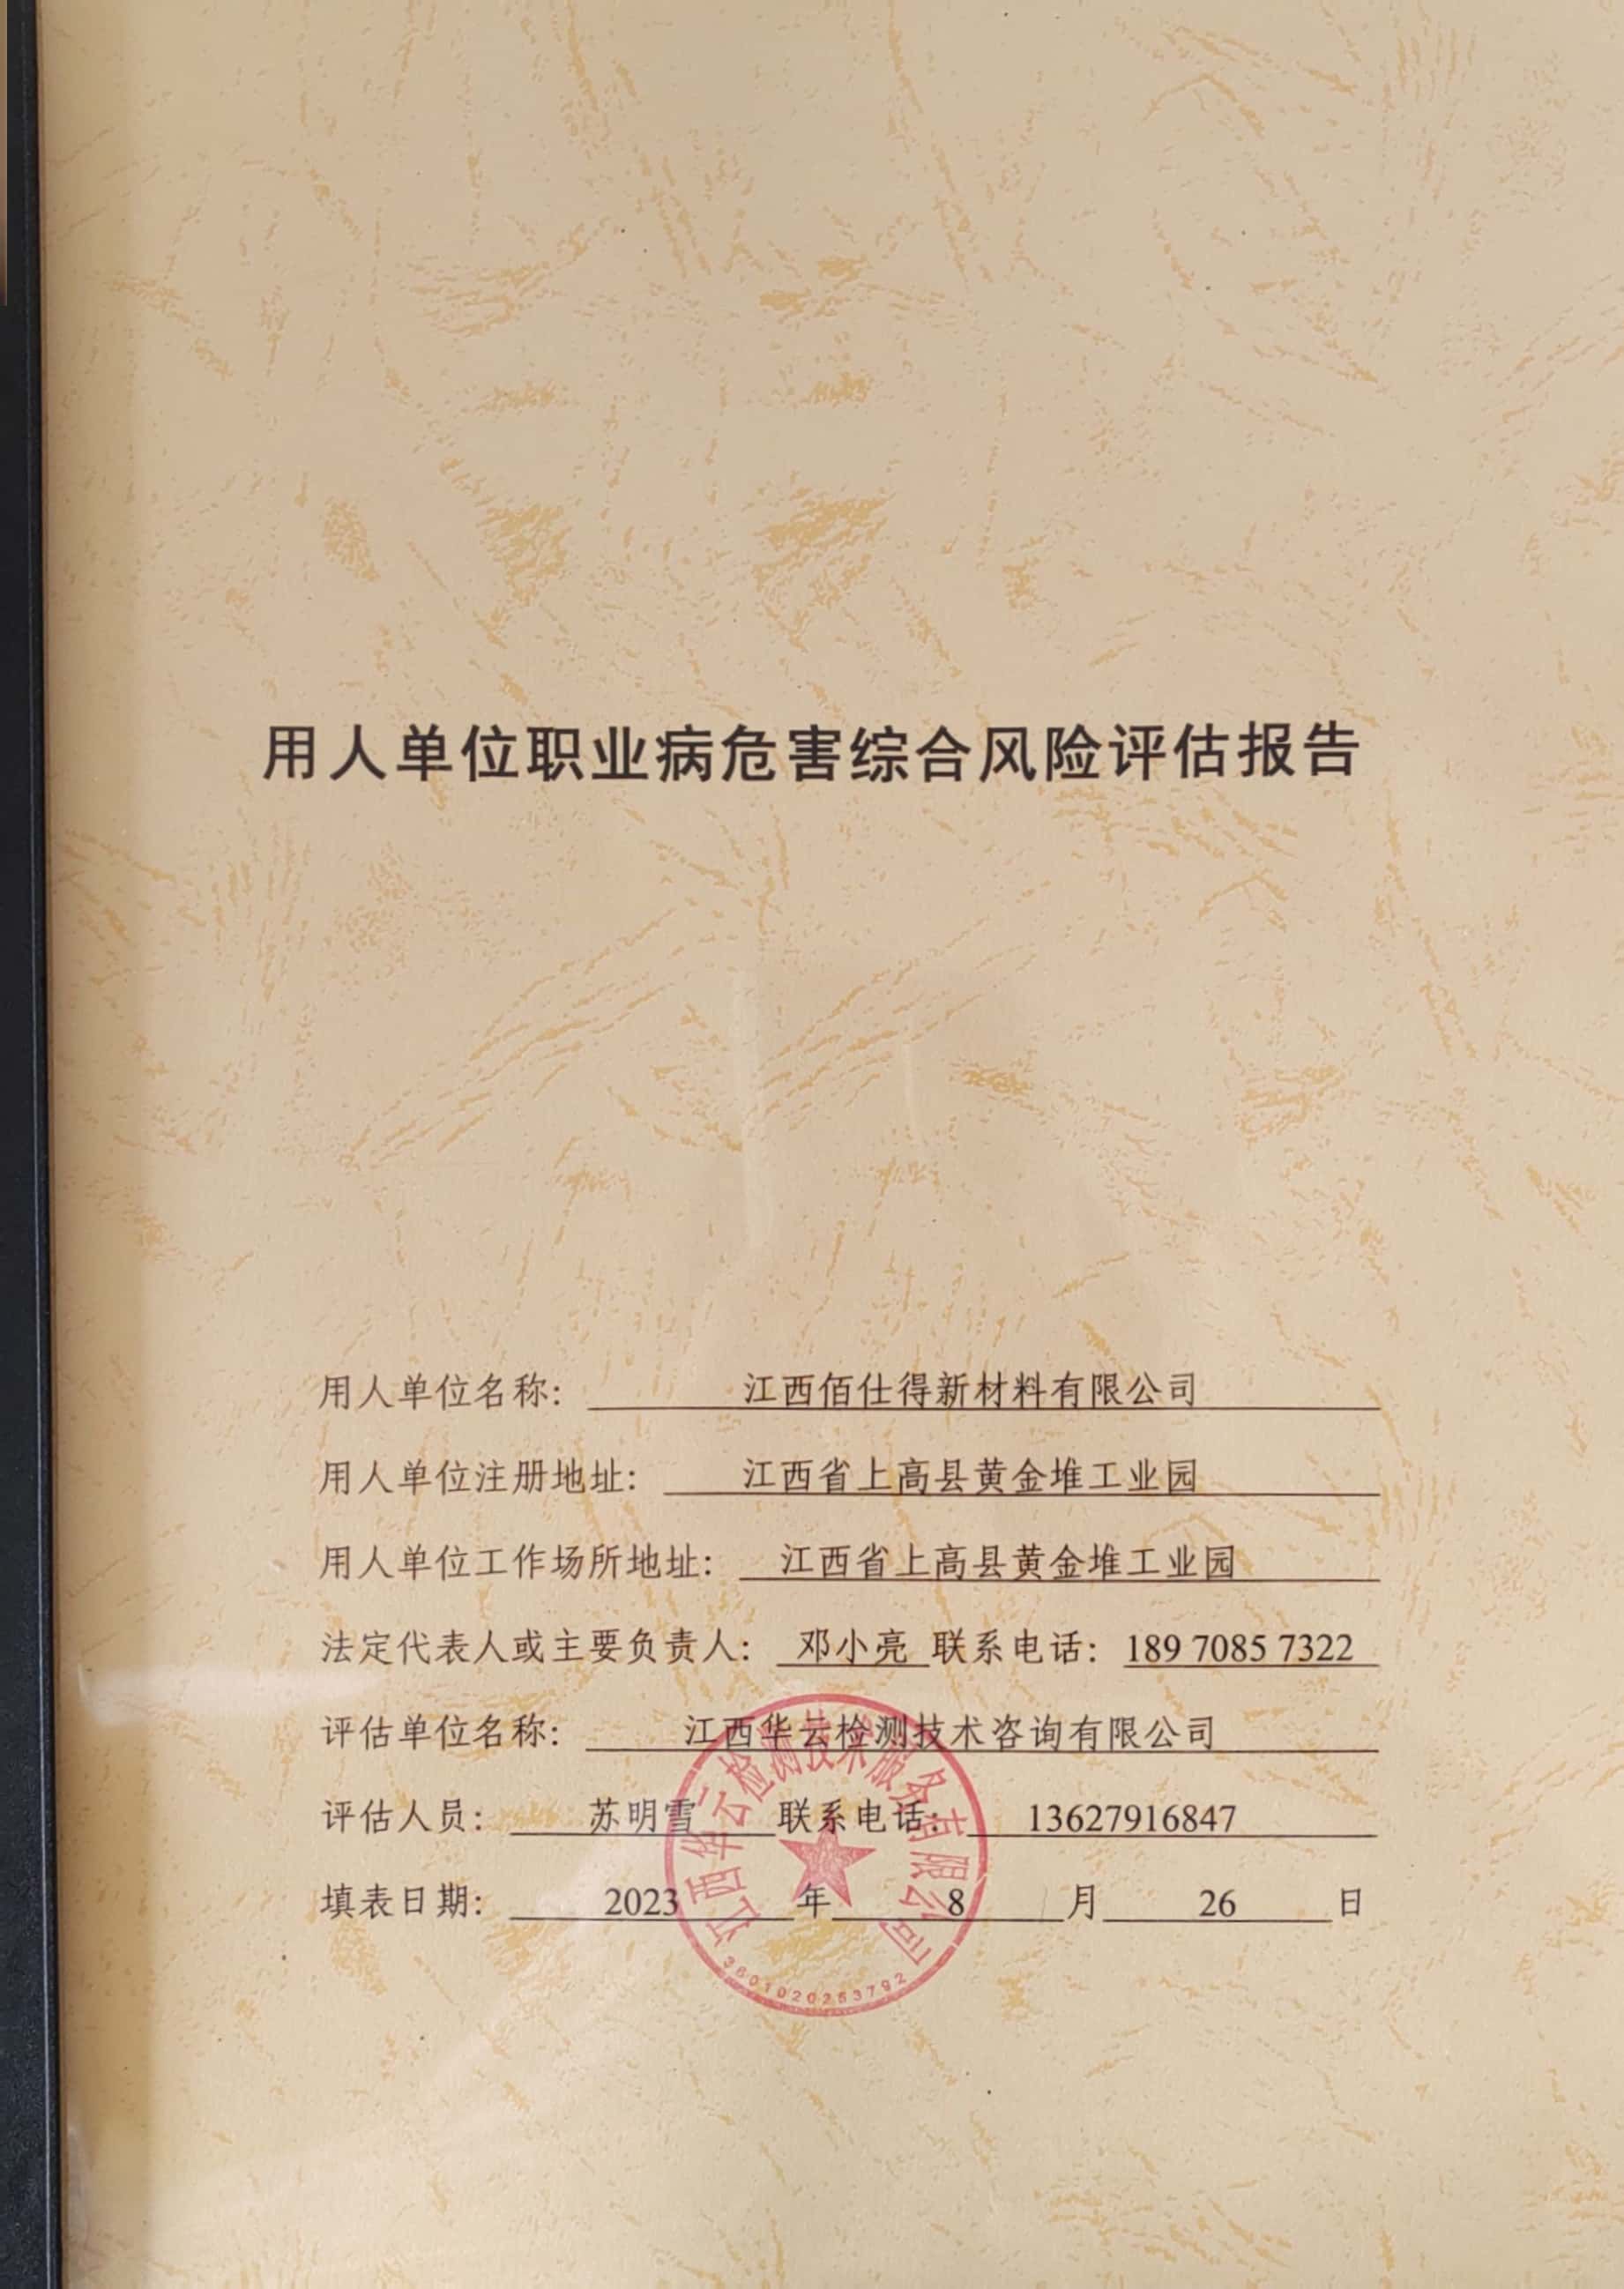 用人单位职业病危害综合风险评估报告
用人单位名称: 江西佰仕得新材料有限公司
用人单位注册地址: 江西省上高县黄金堆工业园
用人单位工作场所地址: 江西省上高县黄金堆工业园
法定代表人或主要负责人: 邓小亮 联系电话: 189 7085 7322
评估单位名称: 江西华云检测技术咨询有限公司
评估人员: 苏明雪 联系电话: 13627916847
填表日期: 2023 年 8 月 26 日
江西华云检测技术服务有限公司
3601020253792